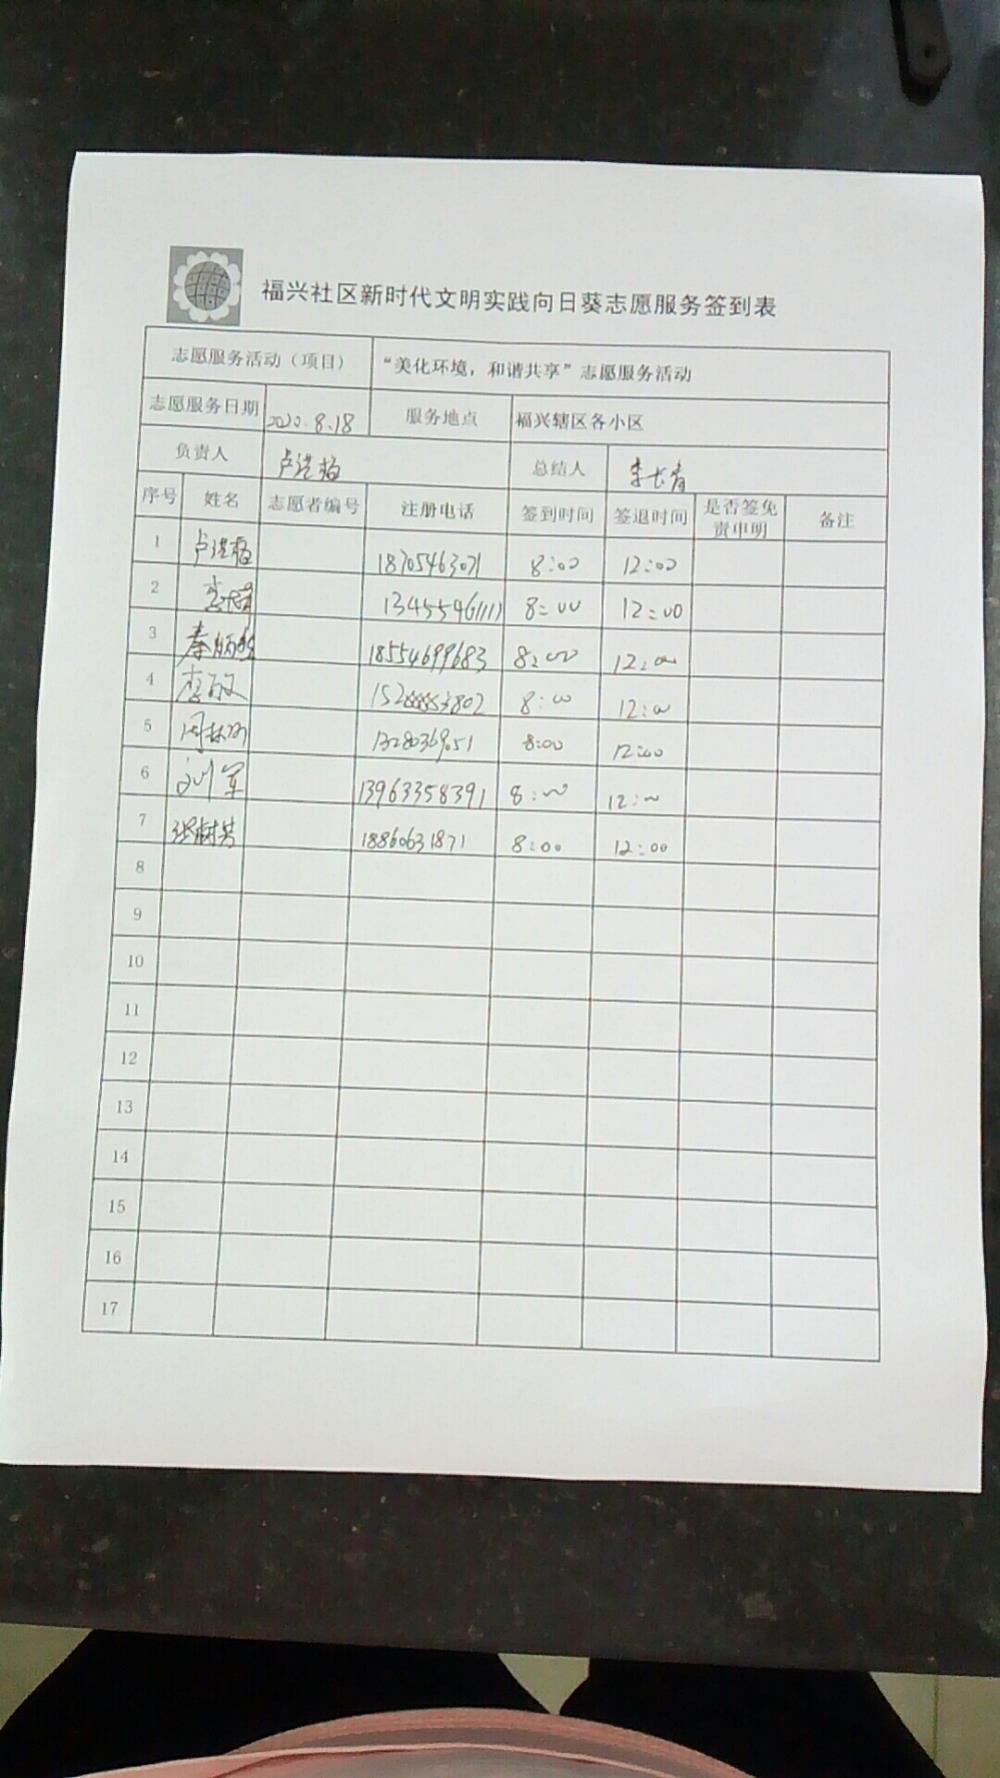 福兴社区新时代文明实践向日葵志愿服务签到表
志愿服务活动（项目） “美化环境，和谐共享”志愿服务活动
志愿服务日期 2020.8.18 服务地点 福兴辖区各小区
负责人 总结人 李长青
序号 姓名 志愿者编号 注册电话 签到时间 签退时间 是否签免责申明 备注
1 18705463071 8:00 12:00
2 13455461111 8:00 12:00
3 18554699683 8:00 12:00
4 李敏 8:00 12:00
5 8:00 12:00
6 刘军 13963358391 8:00 12:00
7 张树芳 18860631871 8:00 12:00
8
9
10
11
12
13
14
15
16
17